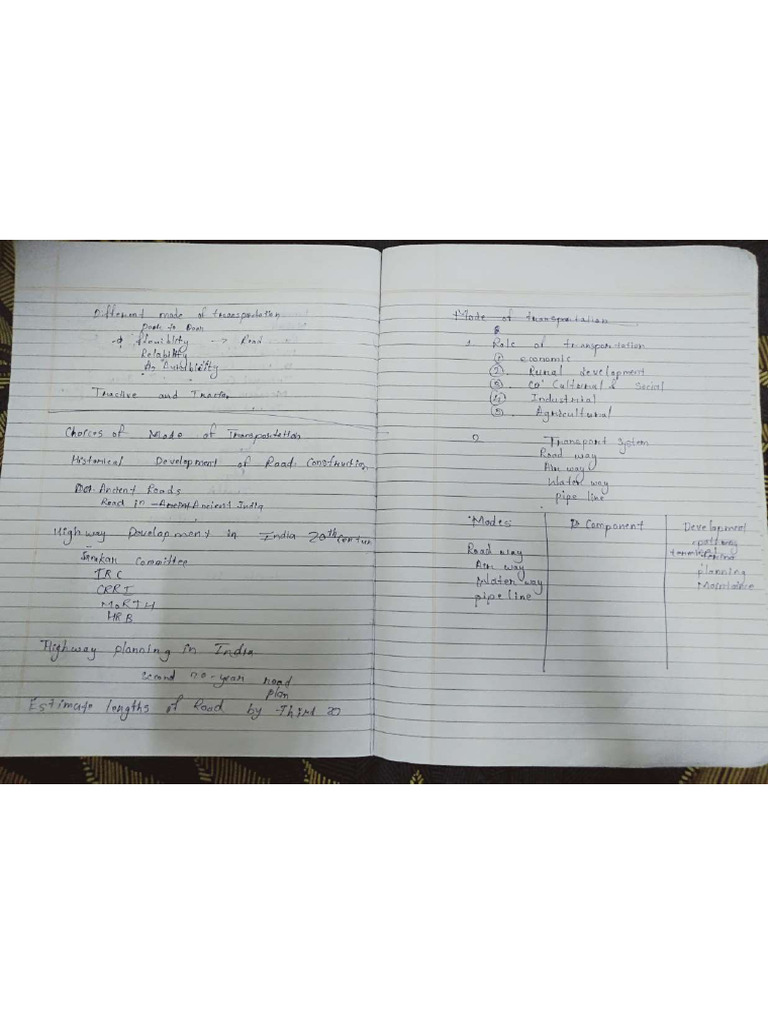 Different mode of transportation
Door to Door
flexiblity -> Road
Relability
Durability
Tractive and
Choices of Mode of Transportation
Historical Development of Road Construction
Ancient Roads
Road in Ancient India
High way Development in India 20th
Committee
IRC
CRRI
MORTH
HRB
Highway planning in India
Second 20-year road
plan
Estimate lengths of Road by Third 20
Mode of transportation
1 Role of transportation
① economic
② Rural development
③ Cultural & Social
④ Industrial
⑤ Agricultural
2 Transport System
Road way
Air way
Water way
pipe line
Modes Component Development
Road way
Air way planning
Water way
pipe line